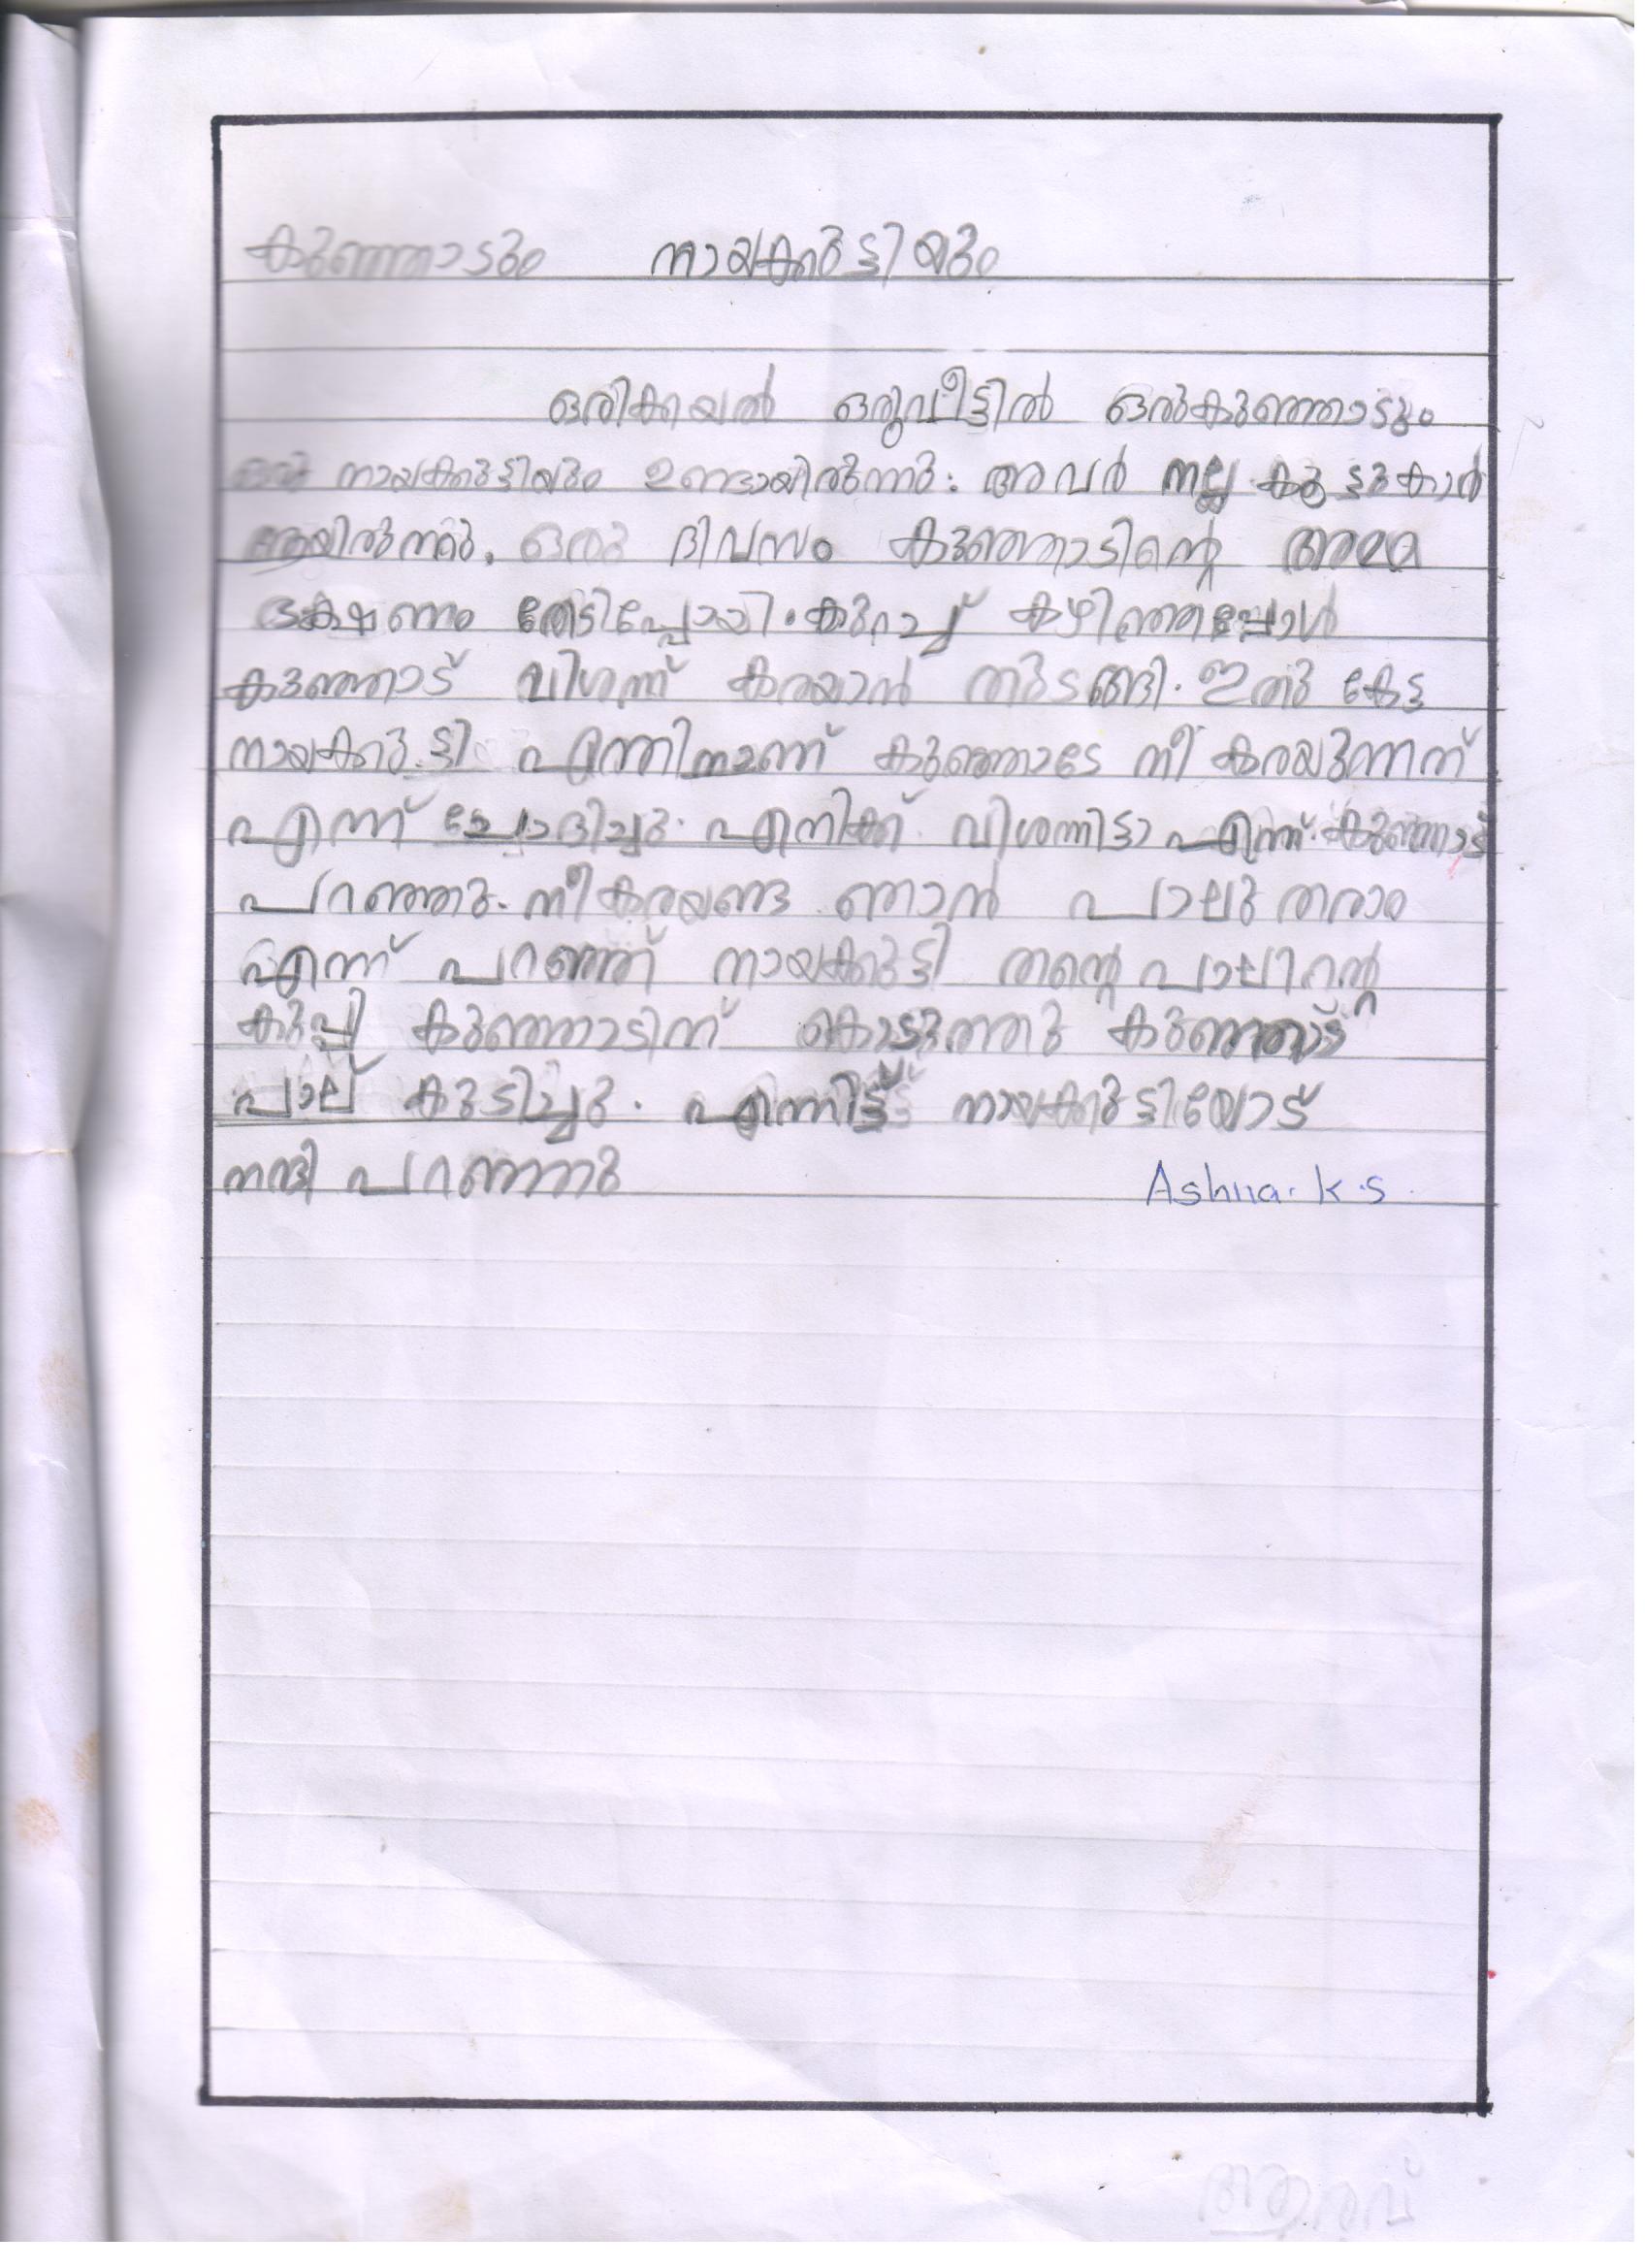 കുഞ്ഞാടും നായക്കുട്ടിയും
ഒരിക്കയൽ ഒരുവീട്ടിൽ ഒരുകുഞ്ഞൊടും
ഒരു നായക്കുട്ടിയും ഉണ്ടായിരുന്നു. അവർ നല്ല കൂട്ടുകാർ
ആയിരുന്നു. ഒരു ദിവസം കുഞ്ഞാടിന്റെ അമ്മ
ഭക്ഷണം തേടിപ്പോയി. കുറച്ച് കഴിഞ്ഞപ്പോൾ
കുഞ്ഞാട് വിശന്ന് കരയാൻ തുടങ്ങി. ഇതു കേട്ട
നായക്കുട്ടി എന്തിനാണ് കുഞ്ഞാടേ നീ കരയുന്നത്
എന്ന് ചോദിച്ചു. എനിക്ക് വിശന്നിട്ടാ എന്ന് കുഞ്ഞാട്
പറഞ്ഞു. നീ കരയണ്ട ഞാൻ പാലു തരാം
എന്ന് പറഞ്ഞ് നായക്കുട്ടി തന്റെ പാലിന്റെ
കുപ്പി കുഞ്ഞാടിന് കൊടുത്തു കുഞ്ഞാട്
പാല് കുടിച്ചു. എന്നിട്ട് നായക്കുട്ടിയോട്
നന്ദി പറഞ്ഞു Ashna. K.S.